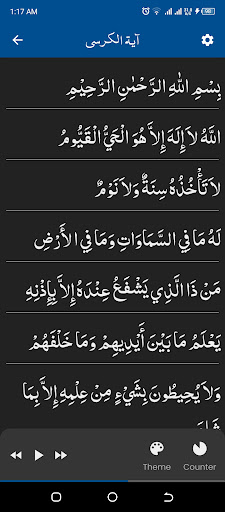 1:17 AM
آية الكرسى
بِسْمِ اللهِ الرَّحْمٰنِ الرَّحِيْمِ
اللَّهُ لاَ إِلَهَ إِلاَّ هُوَ الْحَيُّ الْقَيُّومُ
لاَ تَأْخُذُهُ سِنَةٌ وَلاَ نَوْمٌ
لَهُ مَا فِي السَّمَاوَاتِ وَمَا فِي الأَرْضِ
مَنْ ذَا الَّذِي يَشْفَعُ عِنْدَهُ إِلاَّ بِإِذْنِهِ
يَعْلَمُ مَا بَيْنَ أَيْدِيهِمْ وَمَا خَلْفَهُمْ
وَلاَ يُحِيطُونَ بِشَيْءٍ مِنْ عِلْمِهِ إِلاَّ بِمَا
Theme Counter